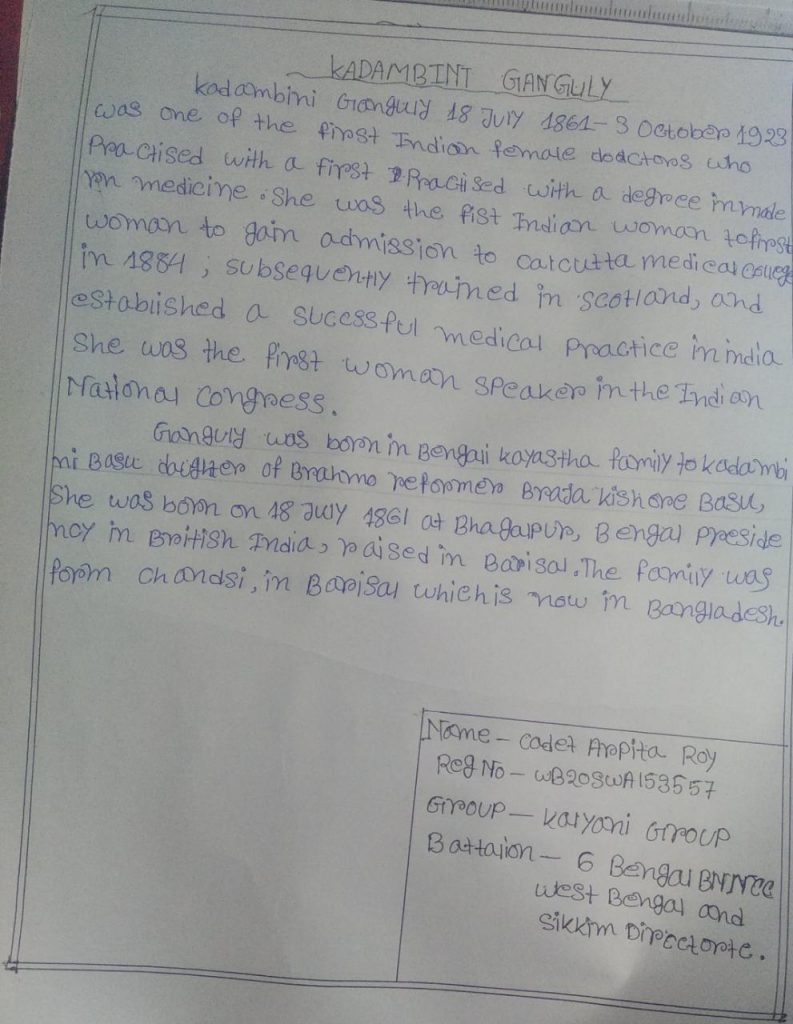 KADAMBINI GANGULY
Kadambini Ganguly 18 July 1861- 3 October 1923
was one of the first Indian female doactors who
Practised with a first Practised with a degree in mode
rn medicine. She was the fist Indian woman to first
woman to gain admission to calcutta medical college
in 1884; subsequently trained in scotland, and
established a successful medical practice in india
She was the first woman speaker in the Indian
National congress.
Ganguly was born in Bengali kayastha family to kadambi
ni Basu daughter of Brahmo reformer Braja kishore Basu,
She was born on 18 July 1861 at Bhagalpur, Bengal preside
ncy in British India, raised in Barisal. The family was
form chandsi, in Barisal which is now in Bangladesh.
Name - Cadet Arpita Roy
Reg No - WB20SWA153557
Group - Kalyani Group
Battalion - 6 Bengal BN NCC
West Bengal and
Sikkim Directorte.